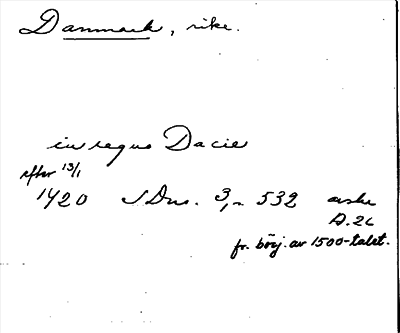 Danmark, rike.
in regno Dacie
efter 13/1
1420 SDns. 3, 532 avskr
A.26
fr. börj. av 1500-talet.